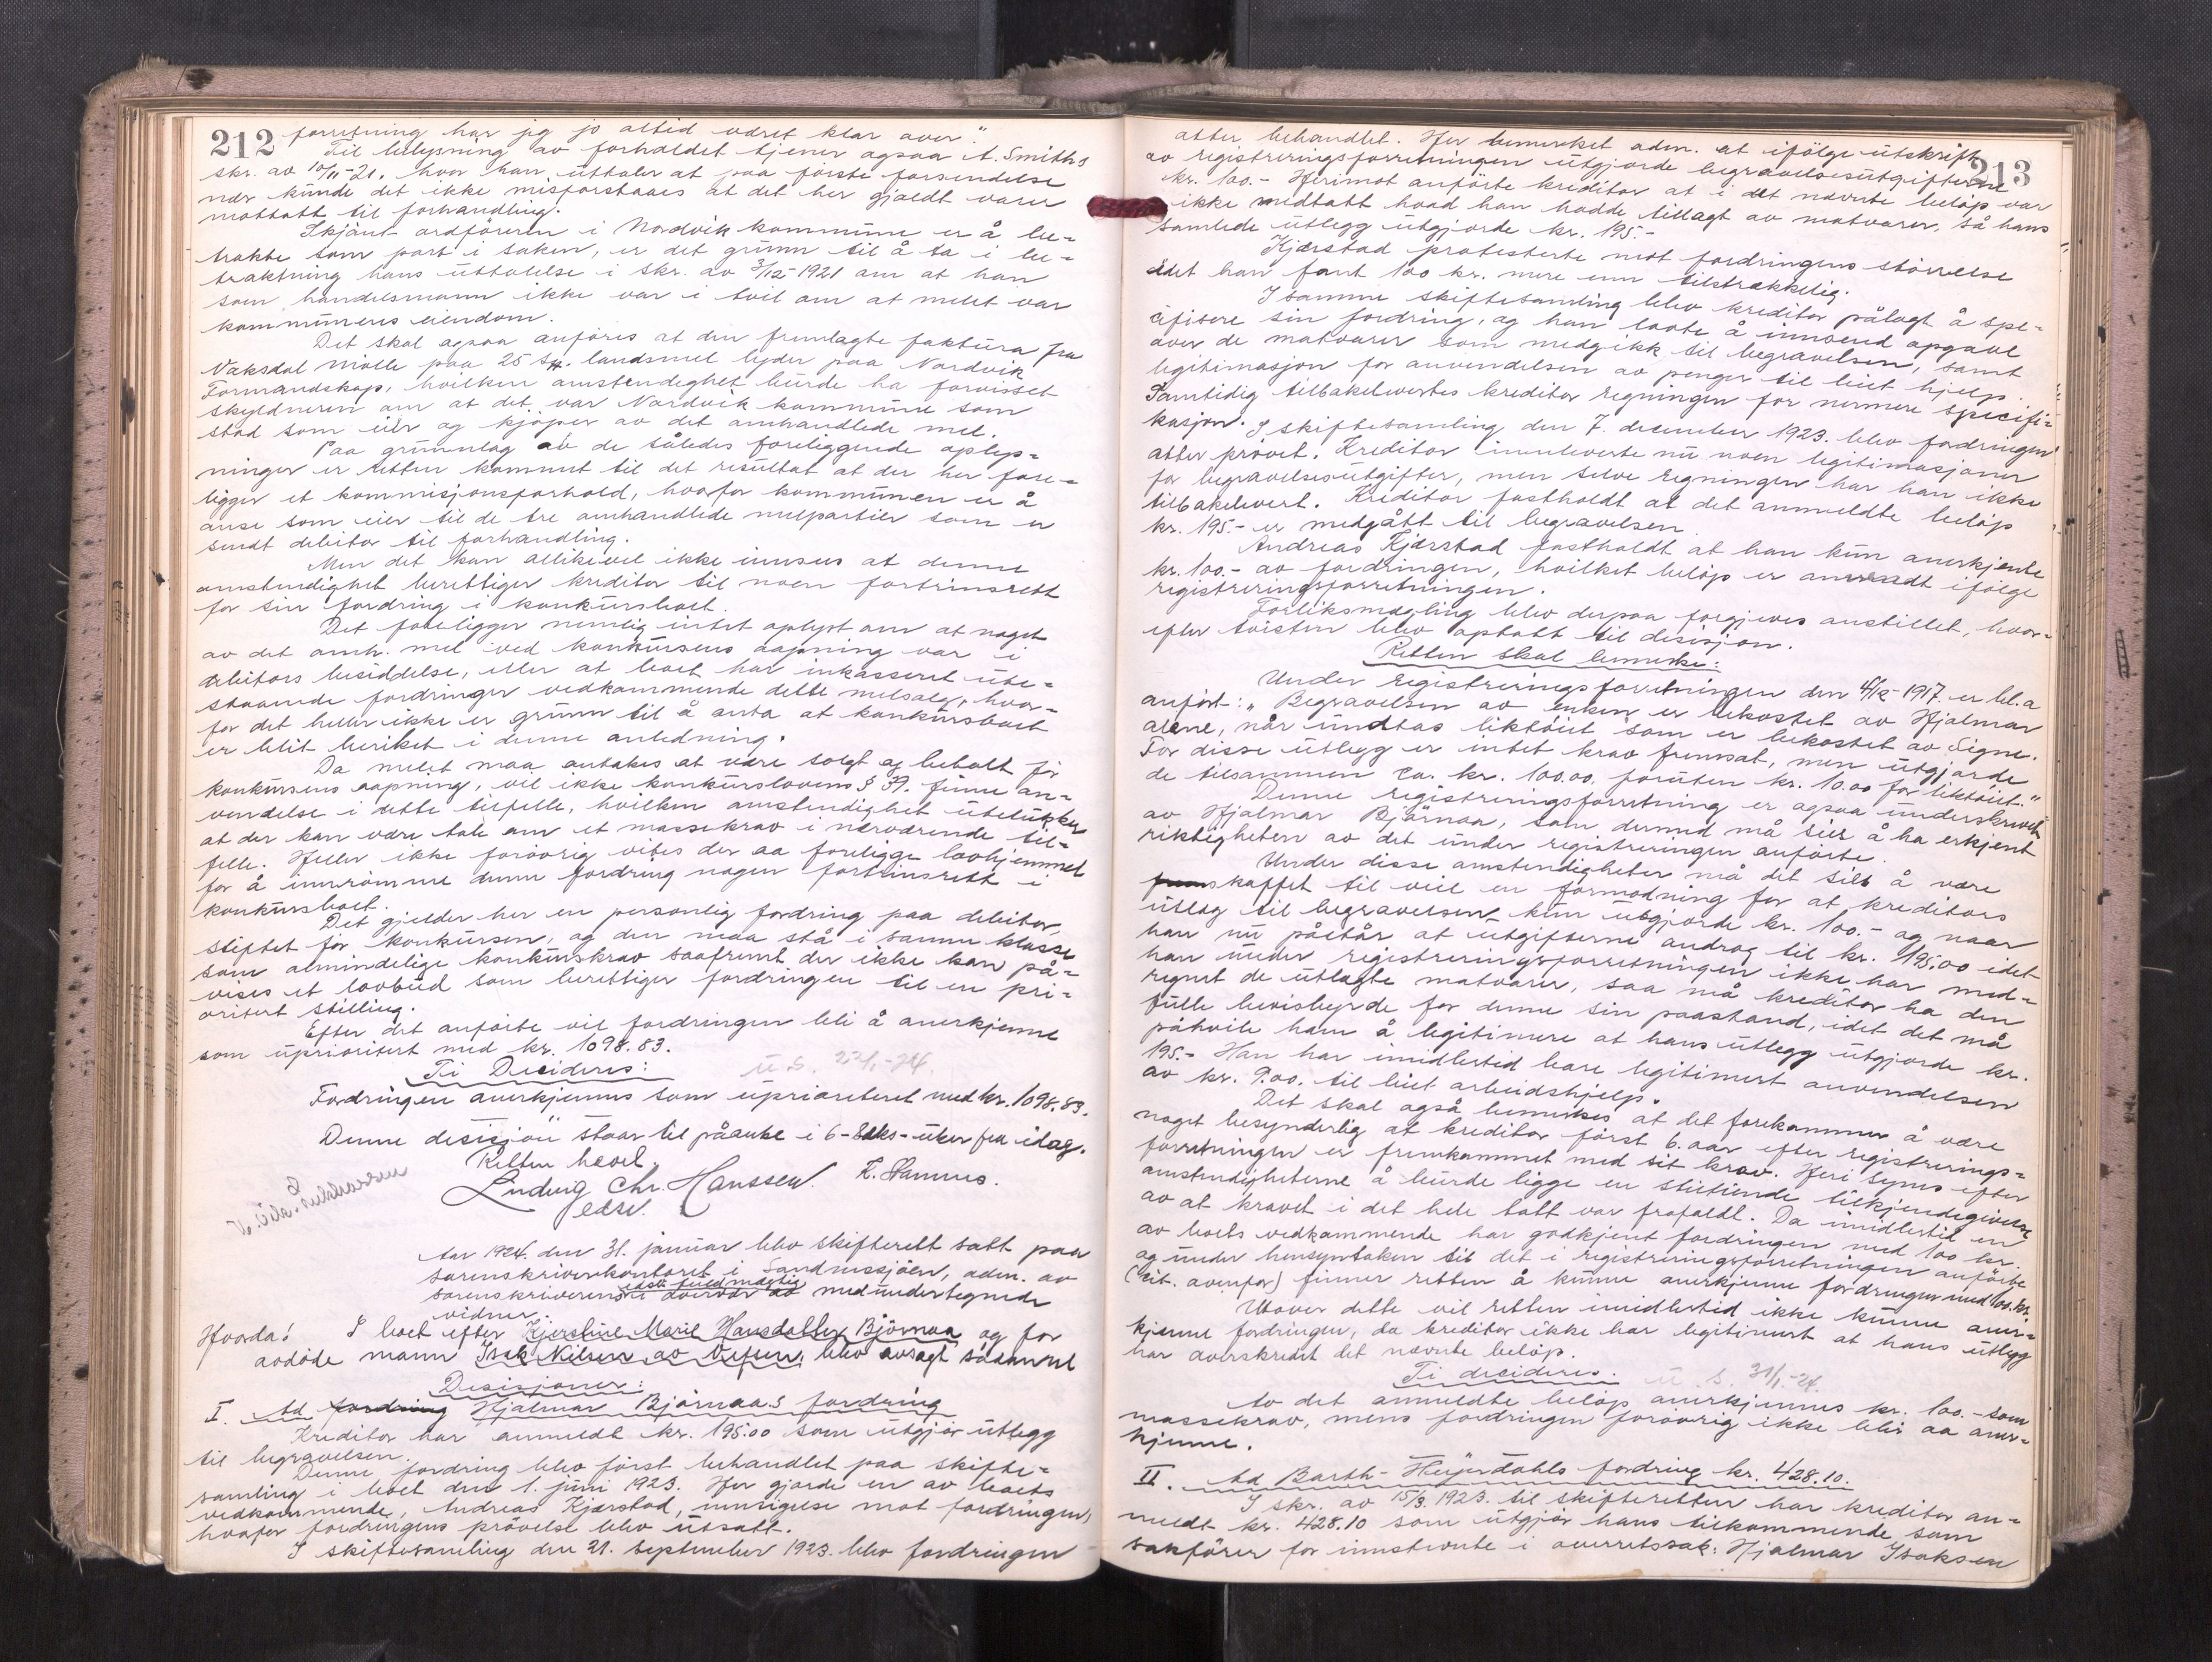 212 forretning har jeg jo altid været klar over."
Til belysning av forholdet tjener ogsaa A. Smiths
skr. av 10/11-21. hvor han uttaler at paa første forsendelse
mel kunde det ikke misforstaaes at det her gjaldt varer
mottatt til forhandling.
Skjønt ordføreren i Nordvik kommune er å be-
trakte som part i saken, er det grunn til å ta i be-
traktning hans uttalelse i skr. av 3/12-1921 om at han
som handelsmann ikke var i tvil om at melet var
kommunens eiendom.
Det skal ogsaa anføres at den fremlagte faktura fra
Vaksdal mølle paa 25 sk. landsmel lyder paa Nordvik
Formandskap, hvilken omstendighet burde ha forvisset
skyldneren om at det var Nordvik kommune som
stod som eier og kjøper av det omhandlede mel.
Paa grunnlag av de således foreliggende oplys-
ninger er retten kommet til det resultat at der her fore-
ligger et kommisjonsforhold, hvorfor kommunen er å
anse som eier til de tre omhandlede melpartier som er
sendt debitor til forhandling.
Men det kan allikevel ikke innsees at denne
omstendighet berettiger kreditor til noen fortrinsrett
for sin fordring i konkursboet.
Det foreligger nemlig intet oplyst om at noget
av det omh. mel ved konkursens aapning var i
debitors besiddelse, eller at boet har inkassert ute-
staaende fordringer vedkommende dette melsalg, hvor-
for det heller ikke er grunn til å anta at konkursboet
er blit beriket i denne anledning.
Da melet maa antakes at være solgt og betalt før
konkursens aapning, vil ikke konkurslovens § 39. finne an-
vendelse i dette tilfelle, hvilken omstendighet utelukker
at der kan være tale om et massekrav i nærværende til-
felle. Heller ikke forøvrig vites der aa foreligge lovhjemmel
for å innrømme denne fordring nogen fortrinsrett i
konkursboet.
Det gjelder her en personlig fordring paa debitor,
stiftet før konkursen, og den maa stå i samme klasse
som almindelige konkurskrav saafremt der ikke kan på-
vises et lovbud som berettiger fordringen til en pri-
oritert stilling.
Efter det anførte vil fordringen bli å anerkjenne
som uprioritert med kr. 1098.83.
Ti Decideres:
Fordringen anerkjennes som uprioriteret med kr. 1098.83.
Denne desisjon staar til påanke i 6-seks-uker fra idag.
Retten hevet
Ludvig Chr. Hanssen.
edsv.
Aar 1924. den 31. januar blev skifterett satt paa
sorenskriverkontoret i Sandnessjøen, adm. av
sorenskriverens edsv. fuldmægtig i overvær av med undertegnede
vidner.
Hvorda! I boet efter Kjerstine Marie Hansdatter Bjørnaa og før
avdøde mann Isak Nilsen av Vefsen, blev avsagt sådanne
Desisjoner:
I. Ad fordring Hjalmar Bjørnaas fordring
Kreditor har anmeldt kr. 195.00 som utgjør utlegg
til begravelsen.
Denne fordring blev først behandlet paa skifte-
samling i boet den 1. juni 1923. Her gjorde en av boets
vedkommende, Andreas Kjærstad, innsigelse mot fordringen,
hvorfor fordringens prøvelse blev utsatt.
I skiftesamling den 21. september 1923. blev fordringen
213
atter behandlet. Her bemerket adm. at ifølge utskrift
av registreringsforretningen utgjorde begravelsesutgifterne
kr. 100.- Herimot anførte kreditor at i det nævnte beløp var
ikke medtatt hvad han hadde tillagt av matvarer, så hans
samlede utlegg utgjorde kr. 195.-
Kjærstad protesterte mot fordringens størrelse
idet han fant 100 kr. mere enn tilstrækkelig.
I samme skiftesamling blev kreditor pålagt å spe-
cifisere sin fordring, og han lovte å innsend opgave
over de matvarer som medgikk til begravelsen, samt
legitimasjon for anvendelsen av penger til leiet hjelp.
Samtidig tilbakelevertes kreditor regningen for nermere specifi-
kasjon.
I skiftesamling den 7. december 1923. blev fordringen
atter prøvet. Kreditor innleverte nu noen legitimasjoner
for begravelsesutgifter, men selve regningen har han ikke
tilbakelevert. Kreditor fastholdt at det anmeldte beløp
kr. 195.- er medgått til begravelsen.
Andreas Kjærstad fastholdt at han kun anerkjente
kr. 100.- av fordringen, hvilket beløp er anvendt ifølge
registreringsforretningen.
Forliksmægling blev derpaa forgjeves anstillet, hvor-
efter tvisten blev optatt til desisjon.
Retten skal bemerke:
Under registreringsforretningen den 4/12-1917. er bl.a
anført: "Begravelsen av enken er bekostet av Hjalmar
alene, når undtas liktøiet som er bekostet av Signe.
For disse utlegg er intet krav fremsat, men utgjorde
de tilsammen ca. kr. 100.00, foruten kr. 10.00 for liktøiet."
Denne registreringsforretning er ogsaa underskrevet
av Hjalmar Bjørnaa, som dermed må sies å ha erkjent
riktigheten av det under registreringen anførte.
Under disse omstendigheter må det sies å være
skaffet til veie en formodning for at kreditors
utlæg til begravelsen kun utgjorde kr. 100.- og naar
han nu påstår at utgifterne androg til kr. 195.00 idet
han under registreringsforretningen ikke har med-
regnet de utlagte matvarer, saa må kreditor ha den
fulle bevisbyrde for denne sin paastand, idet det må
påhvile ham å legitimere at hans utlegg utgjorde kr.
195.- Han har imidlertid bare legitimert anvendelsen
av kr. 9.00. til leiet arbeidshjelp.
Det skal også bemerkes at det forekommer å være
noget besynderlig at kreditor først 6. aar efter registrerings-
forretningen er fremkommet med sit krav. Heri synes efter
omstendigheterne å burde ligge en stiltiende tilkjendegivelse
av at kravet i det hele tatt var frafaldt. Da imidlertid en
av boets vedkommende har godkjent fordringen med 100 kr.
og under hensyntaken til det i registreringsforretningen anførte
(cit. ovenfor) finner retten å kunne anerkjenne fordringen med 100. kr.
Utover dette vil retten imidlertid ikke kunne aner-
kjenne fordringen, da kreditor ikke har legitimert at hans utlegg
har overskredet det nævnte beløp.
Ti decideres. U. S. 31/1-24.
Av det anmeldte beløp anerkjennes kr. 100.- som
massekrav, mens fordringen forøvrig ikke blir aa aner-
kjenne.
II. Ad Barth-Heyerdahls fordring kr. 428.10.
I skr. av 15/3. 1923. til skifteretten har kreditor an-
meldt kr. 428.10 som utgjør hans tilkommende som
sakfører for innstevnte i overretssak: Hjalmar Isaksen